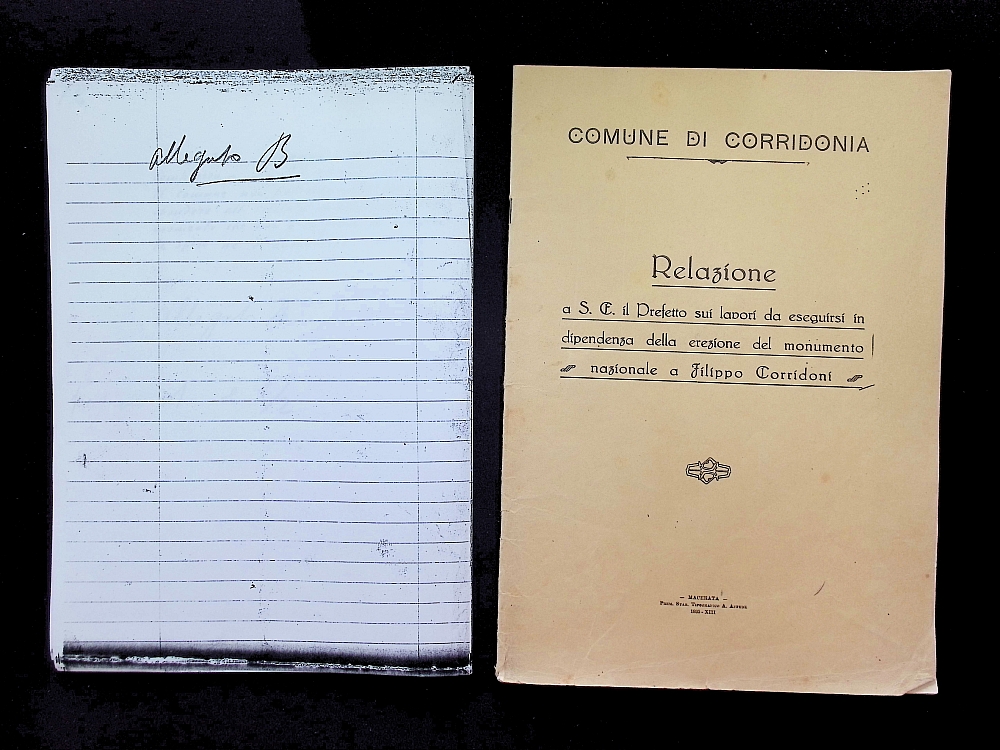 allegato B
COMUNE DI CORRIDONIA
Relazione
a S. E. il Prefetto sui lavori da eseguirsi in
dipendenza della erezione del monumento
nazionale a Filippo Corridoni
— MACERATA —
Prem. Stab. Tipografico A.